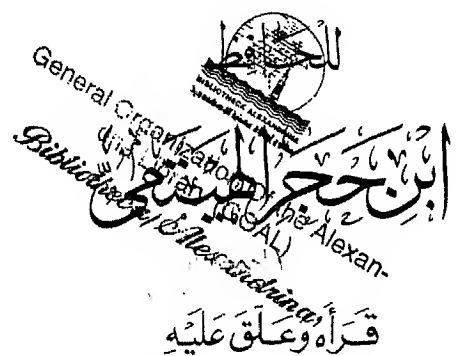 للحافظ
BIBLIOTHECA ALEXANDRINA
ابْنِ حَجَرٍ الهَيْتَمِيّ
General Organization of the Alexan-
Library (GOAL)
Bibliotheca Alexandrina
قَرَأَهُ وَعَلَّقَ عَلَيْهِ